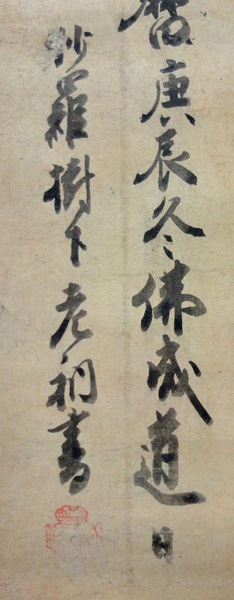 暦庚辰冬佛成道日
沙羅樹下老衲書